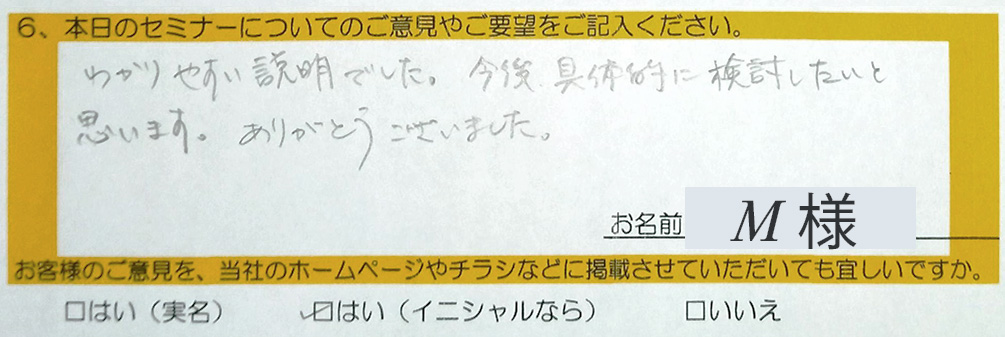 6、本日のセミナーについてのご意見やご要望をご記入ください。
わかりやすい説明でした。今後、具体的に検討したいと
思います。ありがとうございました。
お名前 M 様
お客様のご意見を、当社のホームページやチラシなどに掲載させていただいても宜しいですか。
□はい（実名） ☑はい（イニシャルなら） □いいえ